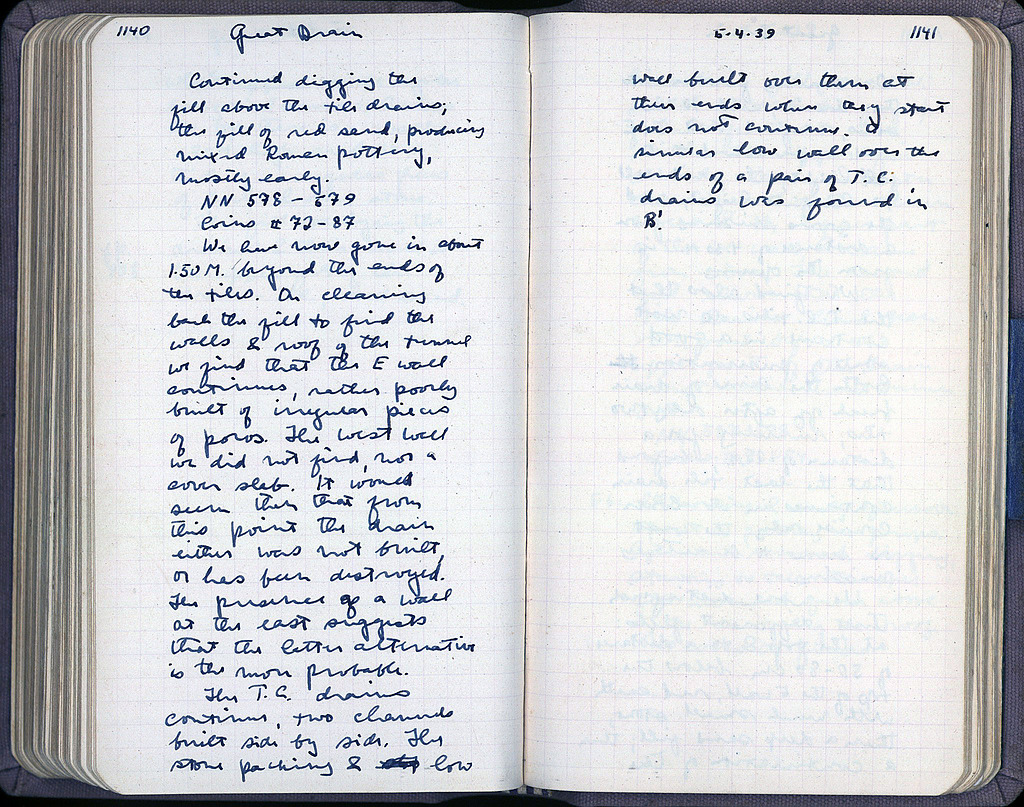 1140 Great Drain
Continued digging the
fill above the tile drains;
the fill of red sand, producing
mixed Roman pottery,
mostly early.
NN 578 - 579
Coins # 72-87
We have now gone in about
1.50 M. beyond the ends of
the tiles. On cleaning
back the fill to find the
walls & roof of the tunnel
we find that the E wall
continues, rather poorly
built of irregular pieces
of poros. The west wall
we did not find, nor a
cover slab. It would
seem then that from
this point the drain
either was not built,
or has been destroyed.
The presence of a wall
at the east suggests
that the latter alternative
is the more probable.
The T.C. drains
continue, two channels
built side by side. The
stone packing & low
5-4-39 1141
wall built over them at
their ends when they start
does not continue. A
similar low wall over the
ends of a pair of T.C.
drains was found in
B'.